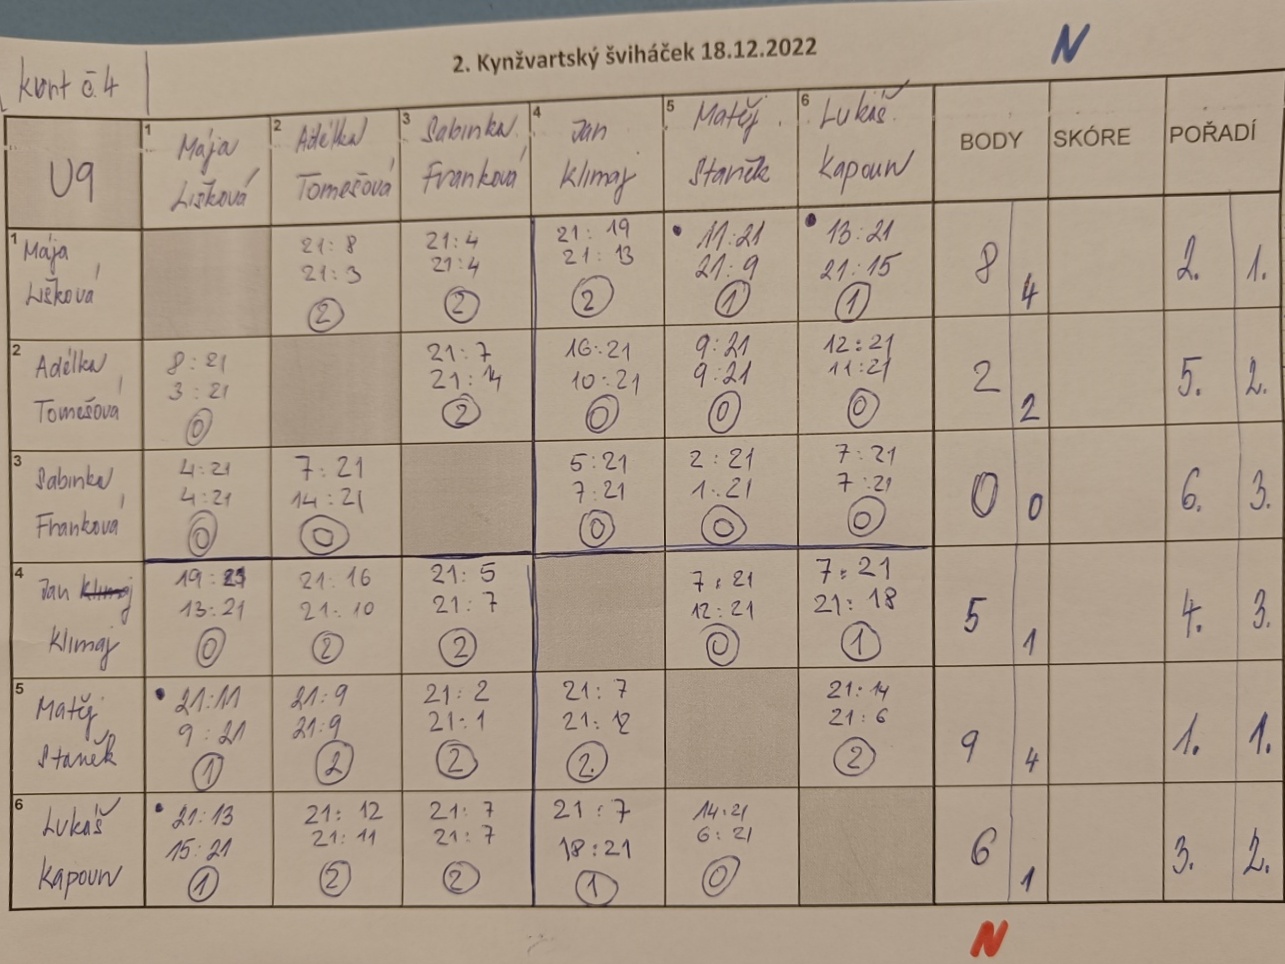 2. Kynžvartský šviháček 18.12.2022
N
kurt č.4
U9
1 Mája Lišková
2 Adélka Tomešová
3 Sabinka Franková
4 Jan Klimaj
5 Matěj Staněk
6 Lukáš Kapoun
BODY
SKÓRE
POŘADÍ
1 Mája Lišková
21:8
21:3
2
21:4
21:4
2
21:19
21:13
2
11:21
21:9
1
13:21
21:15
1
8
4
2.
1.
2 Adélka Tomešová
8:21
3:21
0
21:7
21:14
2
16:21
10:21
0
9:21
9:21
0
12:21
11:21
0
2
2
5.
2.
3 Sabinka Franková
4:21
4:21
0
7:21
14:21
0
5:21
7:21
0
2:21
1:21
0
7:21
7:21
0
0
0
6.
3.
4 Jan Klimaj
Klimaj
19:21
13:21
0
21:16
21:10
2
21:5
21:7
2
7:21
12:21
0
7:21
21:18
1
5
1
4.
3.
5 Matěj Staněk
21:11
9:21
1
21:9
21:9
2
21:2
21:1
2
21:7
21:12
2
21:14
21:6
2
9
4
1.
1.
6 Lukáš Kapoun
21:13
15:21
1
21:12
21:11
2
21:7
21:7
2
21:7
18:21
1
14:21
6:21
0
6
1
3.
2.
N